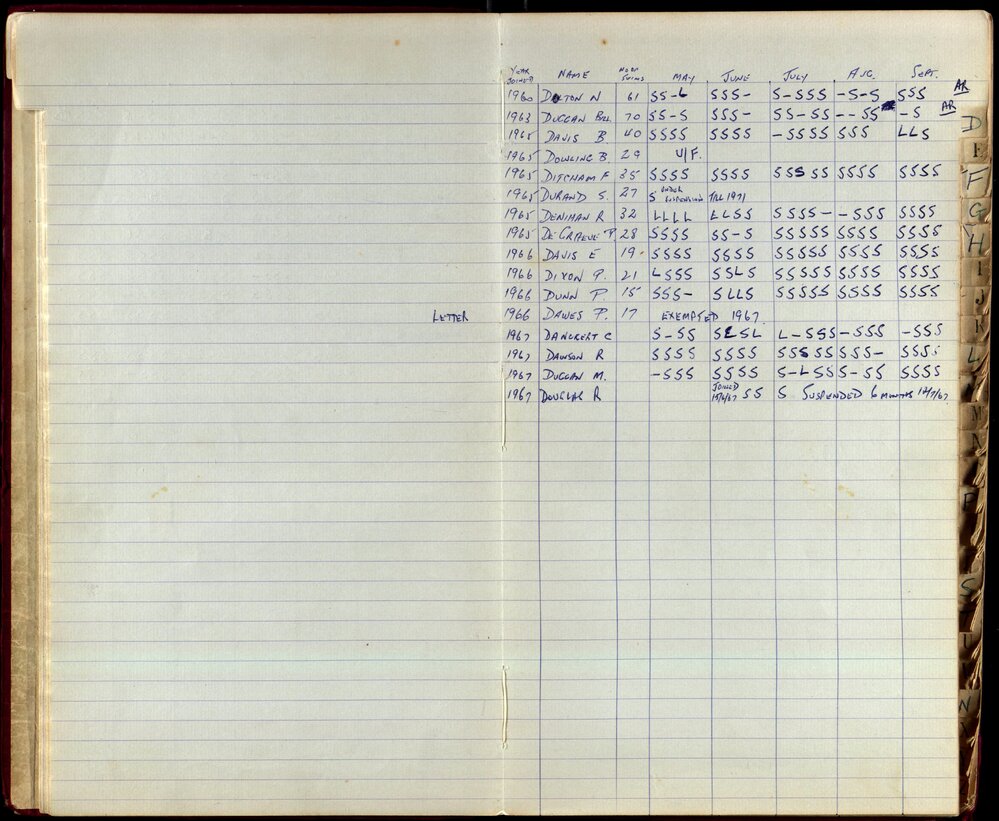 YEAR JOINED NAME NO OF SWIMS MAY JUNE JULY AUG. SEPT.
1960 DALTON N 61 SS-L SSS- S-SSS -S-S SSS AR
1963 DUGGAN BILL 70 SS-S SSS- SS-SS --SS -S AR
1965 DAVIS B 40 SSSS SSSS -SSSS SSS LLS
1965 DOWLING B. 29 U/F.
1965 DITCHAM F 35 SSSS SSSS SSSSS SSSS SSSS
1965 DURAND S. 27 S UNDER SUSPENSION TILL 1971
1965 DENIMAN R 32 LLLL LLSS SSSS- -SSS SSSS
1965 DE GRAEVE P. 28 SSSS SS-S SSSSS SSSS SSSS
1966 DAVIS E 19 SSSS SSSS SSSSS SSSS SSSS
1966 DIXON P. 21 LSSS SSLS SSSSS SSSS SSSS
1966 DUNN P. 15 SSS- SLLS SSSSS SSSS SSSS
LETTER 1966 DAWES P. 17 EXEMPTED 1967
1967 DANCKERT C S-SS SLSL L-SSS -SSS -SSS
1967 DAWSON R SSSS SSSS SSSSS SSS- SSSS
1967 DUGGAN M. -SSS SSSS S-LSS S-SS SSSS
1967 DOUGLAS R JOINED 18/6/67 SS S SUSPENDED 6 MONTHS 12/7/67
D
E
F
G
H
I
J
K
L
M
N
P
S
T
U
W